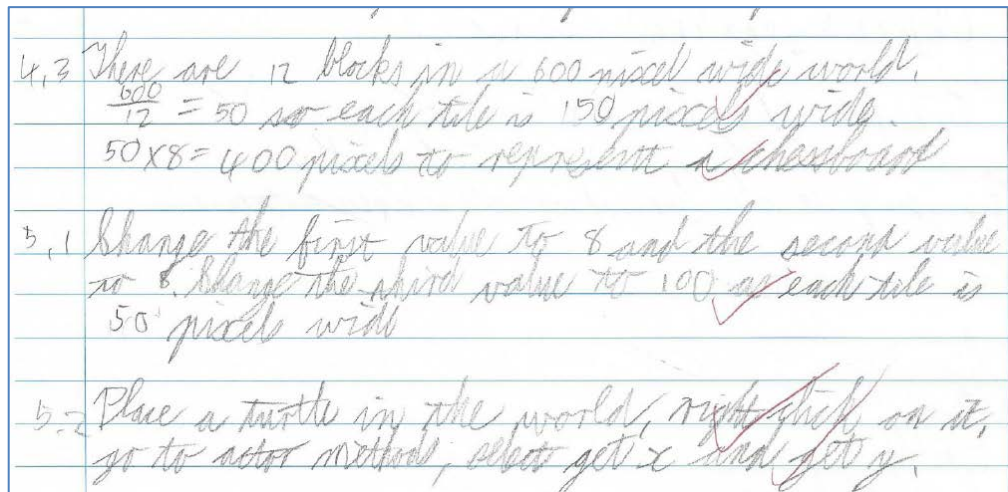 4.3 There are 12 blocks in a 600 pixel wide world.
600/12 = 50 so each tile is 150 pixels wide.
50 x 8 = 400 pixels to represent a chessboard
5.1 Change the first value to 8 and the second value
to 8. Change the third value to 100 as each tile is
50 pixels wide
5.2 Place a turtle in the world, right click on it,
go to actor methods, select get x and get y.